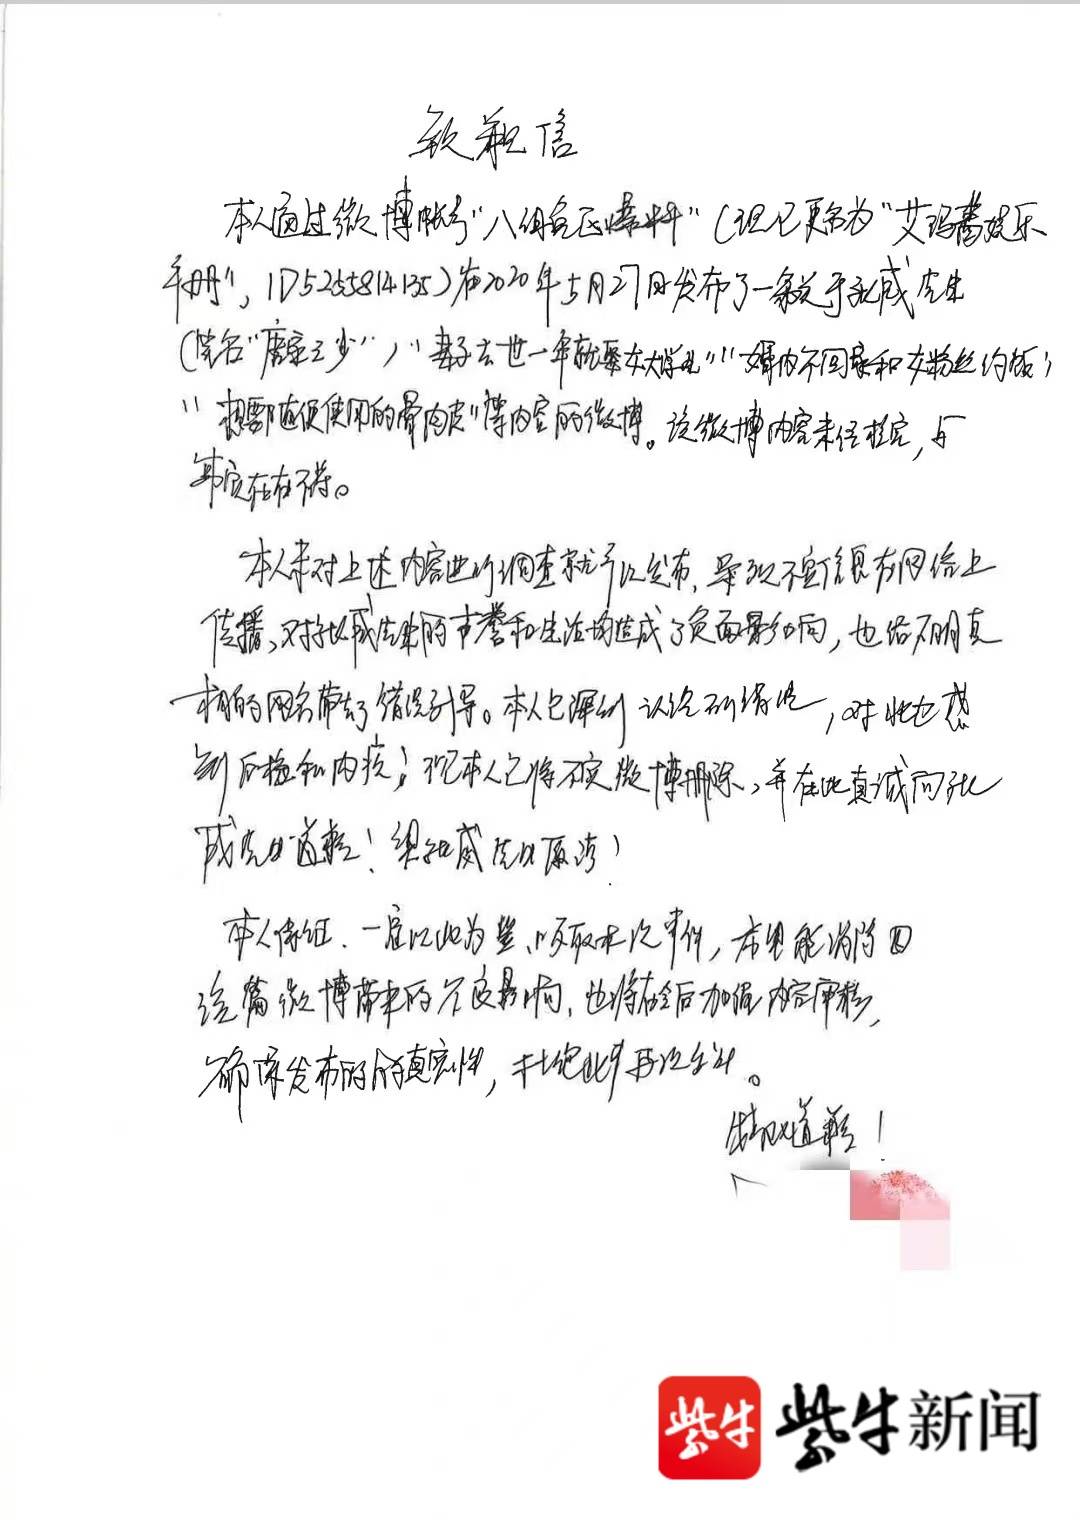 致歉信
本人通过微博帐号"八组兔区爆料"(现已更名为"艾玛酱娱乐
手册", ID5255814135)在2020年5月27日发布了一条关于张威先生
(笔名"唐家三少")"妻子去世一年就娶女大学生""婚内不回家和女粉丝约饭"
"想要随便使用的骨肉皮"等内容的微博。该微博内容未经核实,与
事实存在不符。
本人未对上述内容进行调查就予以发布,导致不实信息在网络上
传播,对张威先生的声誉和生活均造成了负面影响,也给不明真
相的网名带去了错误引导。本人已深刻认识到错误,对此也感
到后悔和内疚;现本人已将不实微博删除,并在此真诚向张
威先生道歉!望张威先生原谅!
本人保证,一定以此为鉴,吸取本次事件,希望能消除因
该篇微博带来的不良影响,也将在今后加强内容审核,
确保发布的真实性,杜绝此事再次发生。
特以道歉!
紫牛 紫牛新闻